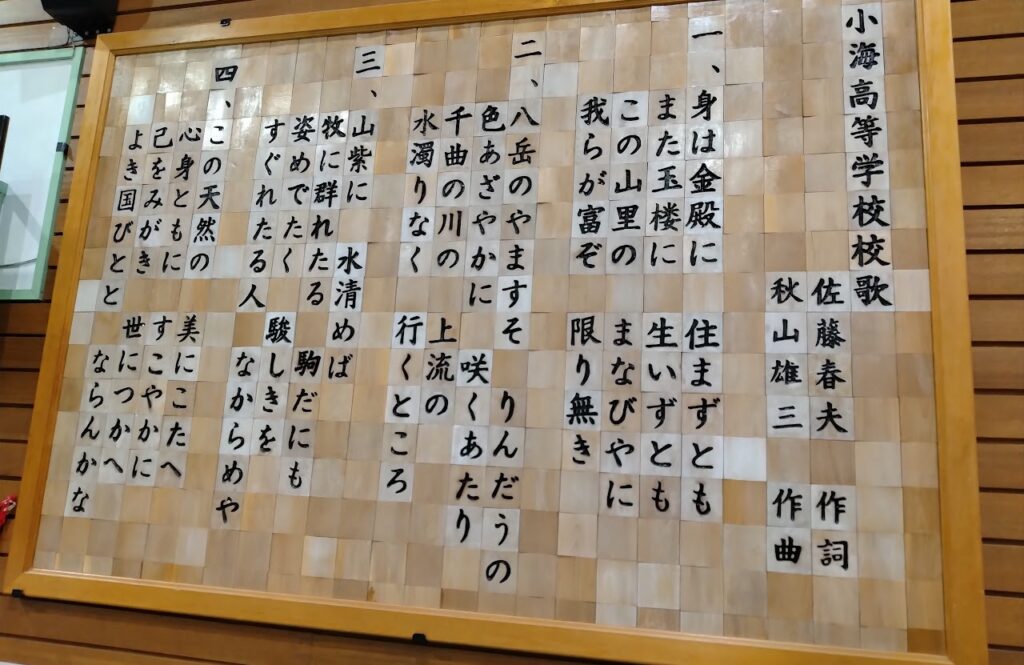 小海高等学校校歌
佐藤春夫 作詞
秋山雄三 作曲
一、
身は金殿に 住まずとも
また玉楼に 生いずとも
この山里の まなびやに
我らが富ぞ 限り無き
二、
八岳のやますそ りんだうの
色あざやかに 咲くあたり
千曲の川の 上流の
水濁りなく 行くところ
三、
山紫に 水清めば
牧に群れたる 駒だにも
姿めでたく 駿しきを
すぐれたる人 なからめや
四、
この天然の 美にこたへ
心身ともに すこやかに
己をみがき 世につかへ
よき国びとと ならんかな